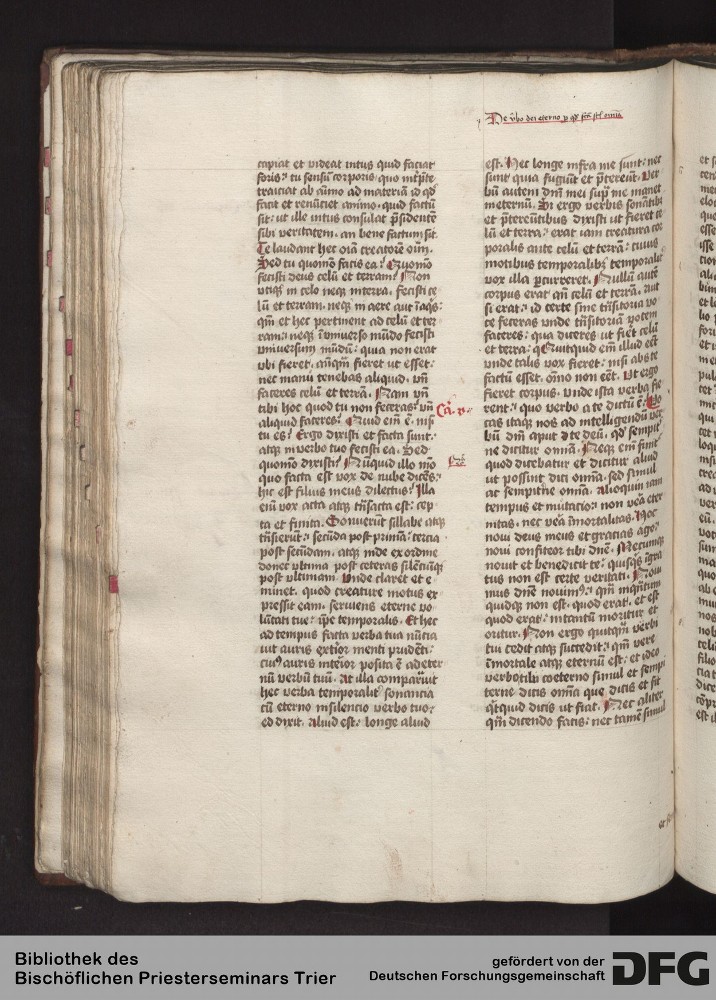 De v̄bo dei eterno p̱ qd̄ fc̄ta st̄ omīa
capiat et videat intus quid faciat
foris⁊ tu sensū corporis quo int̄pte
traiciat ab aīmo ad materiā id qd̄
facit et renūciet animo. quid factū
sit: ut ille intus consulat p̄sidentē
sibi veritatem. an bene factum sit.
Te laudant hec oīa creatorē oīm.
Sed tu quomō facis ea? Quomō
fecisti deus celū et terram? Non
utiq; in celo neq; in terra. fecisti ce
lū et terram. neq; in aere aut ī aq̄s:
qm̄ et hec pertinent ad celū et ter
ram: neq; ī vniuerso mūdo fecisti
vniuersum mūdū: quia non erat
vbi fieret. an̄q̄m fieret ut esset:
nec manu tenebas aliquid. vn̄
faceres celū et terrā. Nam vn̄
tibi hoc quod tu non feceras? vn̄
aliquid faceres? Quid em̄ ē. nisi
tu es? Ergo dixisti et facta sunt.
atq; in verbo tuo fecisti ea. Sed
quomō dixisti? Nūquid illo mō
quo facta est vox de nube dicēs:
hic est filius meus dilectus? Illa
eīū vox acta atq; trāsacta est: cep
ta et finita. Sonuerūt sillabe atq;
trāsierūt: secūda post primā: tercia
post secūdam. atq; inde ex ordine
donec vltima post ceteras silēciūq;
post vltimam. Vnde claret et e
minet. quod creature motus ex
pressit eam. seruiens eterne vo
lūtati tue: ip̄e temporalis. Et hec
ad tempus facta verba tua nūcia
vit auris ext̄ior menti prudēti:
cui⁹ auris inter̄ior posita ē ad eter
nū verbū tuū. At illa comparauit
hec verba temporalit̄ sonancia
cū eterno in silencio verbo tuo:
et dixit. aliud est: longe aliud
Ca. v.
est. Hec longe infra me sunt: nec
sunt quia fugiūt et p̄tereūt. Ver
bū autem dn̄i mei sup̱ me manet
in eternū. Si ergo verbis sonātib⁹
et p̄tereūtibus dixisti ut fieret ce
lū et terra: erat iam creatura cor
poralis ante celū et terrā: cuius
motibus temporalib; temporalit̄
vox illa p̱curreret. Nullū aūtē
corpus erat an̄ celū et terrā. aut
si erat: id certe sine trāsitoria vo
ce feceras vnde trāsitoriā vocem
faceres: qua diceres ut fiēt celū
et terra: Quitquid em̄ illud eēt
vnde talis vox fieret: nisi abs te
factū esset. oīmo non eēt. Ut ergo
fieret corpus. vnde ista verba fie
rent: quo verbo a te dictū ē? Vo
cas itaq; nos ad intelligendū ver
bū. dm̄ aput d te deū. qd̄ sempit̄
ne dicitur omīa. Neq; em̄ finit̄
quod dicebatur et dicitur aliud
ut possint dici omīa. sed simul
ac sempit̄ne omīa. alioquin iam
tempus et mutacio: non vēa eter
nitas. nec vēa īmortalitas. Hoc
noui deus meus et gracias ago:
noui confiteor tibi dn̄e. Mecumq;
nouit et benedicit te: quisq̄s īgra
tus non est certe veritati. Noui
mus dn̄e nouim⁹: qm̄ inq̄ntum
quidq; non est. quod erat. et est
quod erat: in tantū moritur et
oritur. Non ergo quitq̄m verbi
tui cedit atq; succedit: qm̄ vere
īmortale atq; eternū est: et ideo
verbo tibi coeterno simul et sempi
terne dicis omīa que dicis et fit
q̄tquid dicis ut fiat. Nec aliter
q̄m dicendo facis: nec tamē simul
Bibliothek des
Bischöflichen Priesterseminars Trier
gefördert von der
Deutschen Forschungsgemeinschaft
DFG